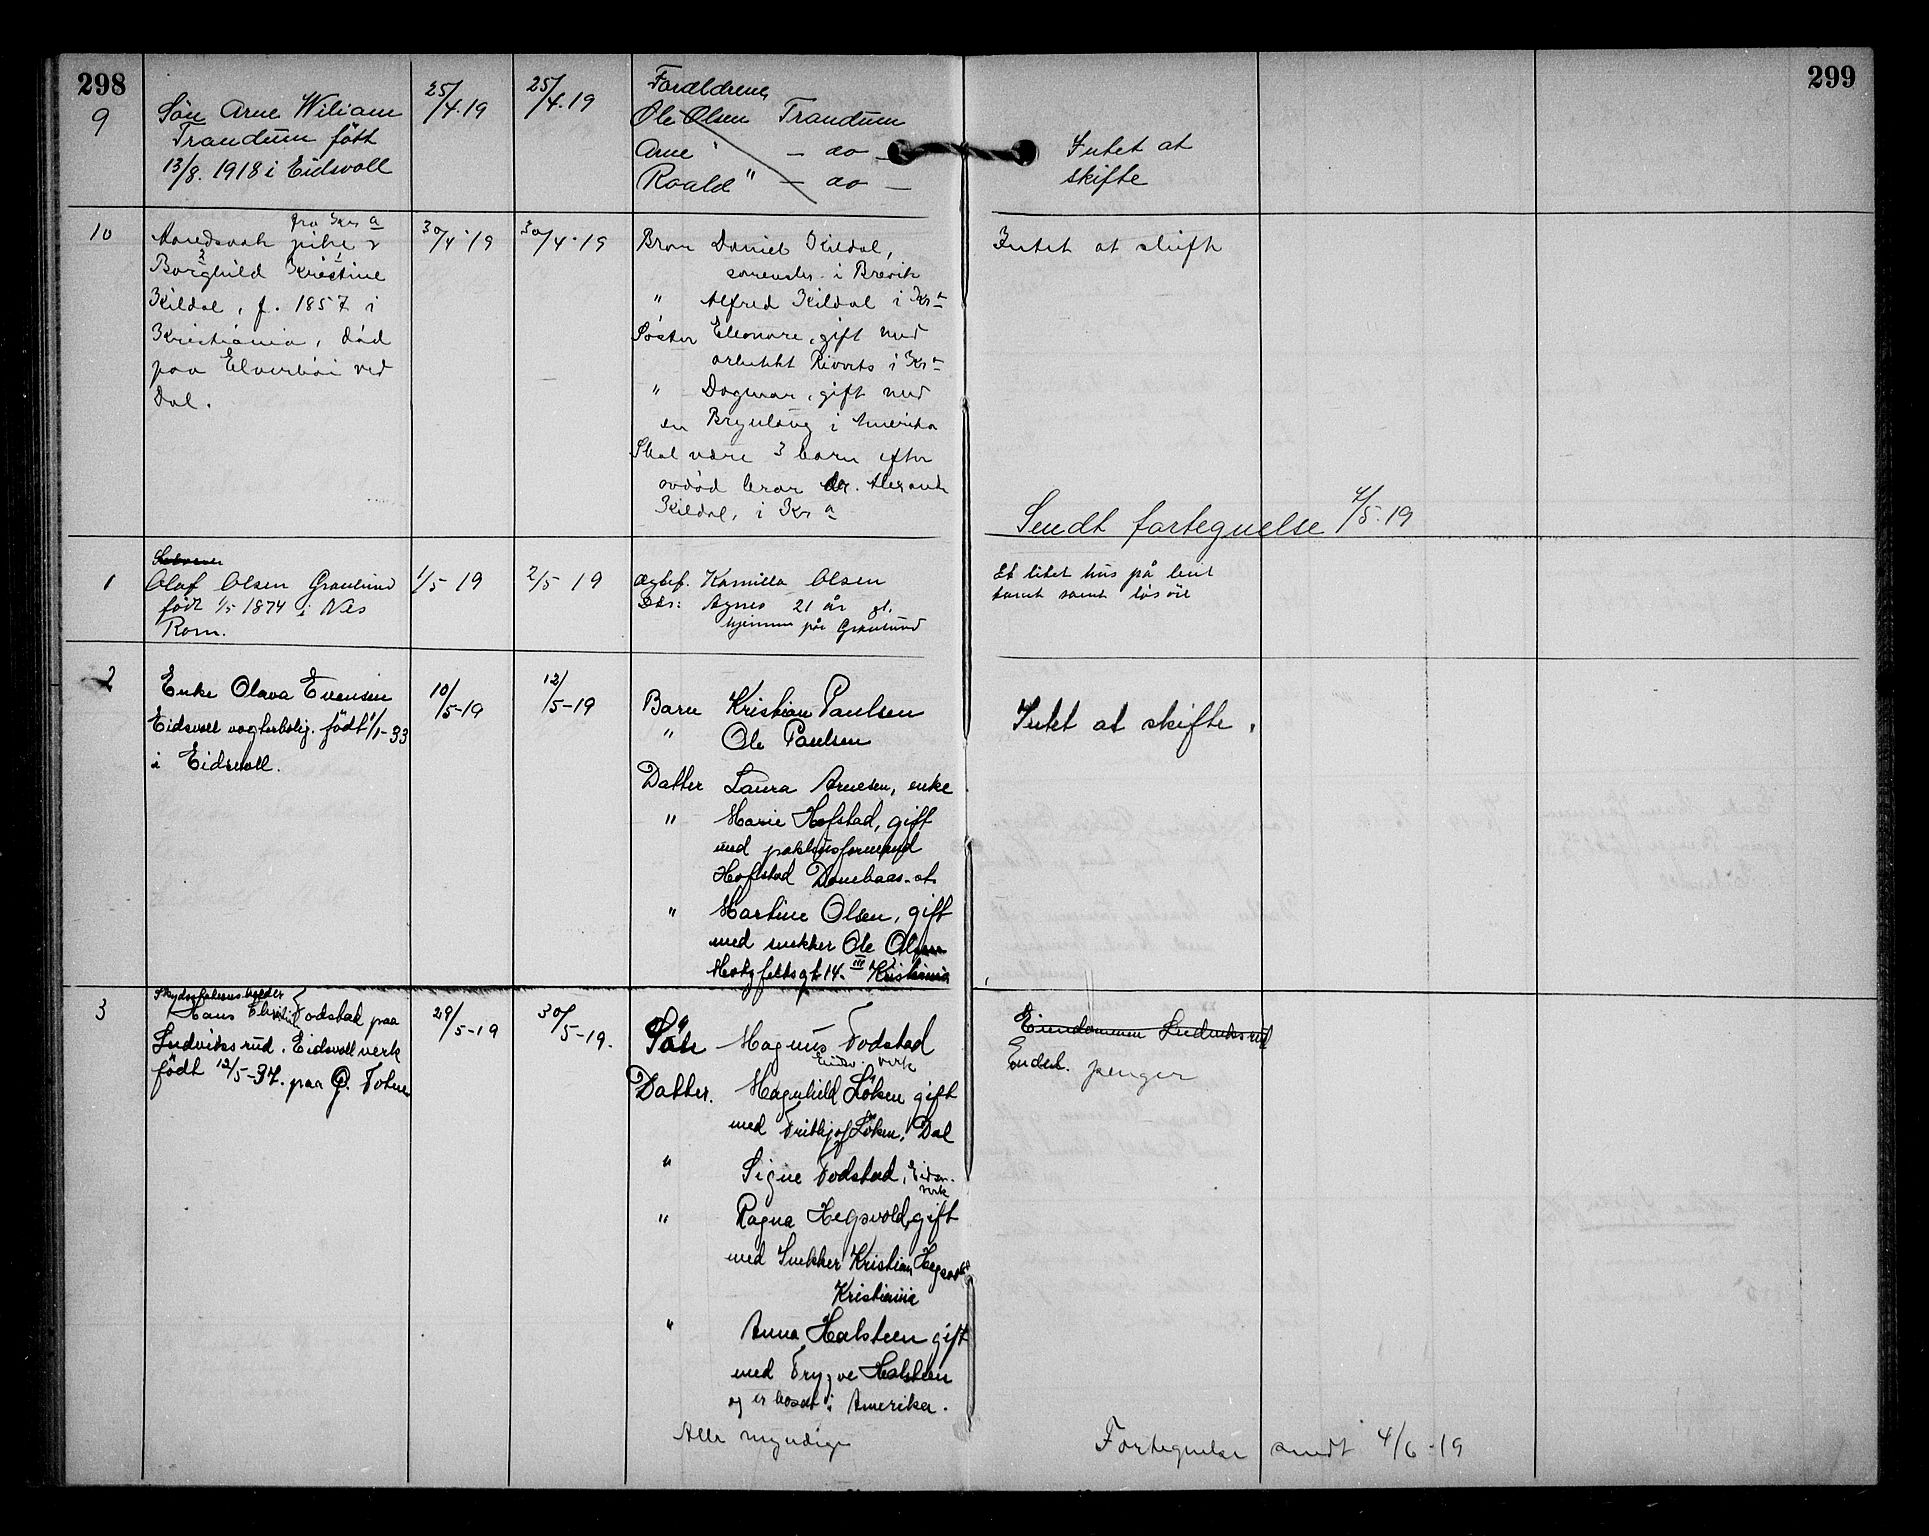 298
299
9
Søn Arne Wiliam
Trandum født
13/8. 1918 i Eidsvoll
25/4.19
25/4.19
Forældrene
Ole Olsen Trandum
Arne " — do —
Roald " — do —
Intet at
skifte
10
fra Kra
pike
Borghild Kristine
Kildal, f. 1857 i
Kristiania, død
paa Elverhøi ved
Dal.
30/4.19
30/4.19
Bror Daniel Kildal,
sorenskr. i Brevik
" Alfred Kildal i Kra
Søster Eleonore, gift med
arkitekt i Kra
" Dagmar, gift med
en i Amerika
Skal være 3 barn efter
avdød bror dr.
Kildal, i Kra
Intet at skifte
Sendt fortegnelse 4/5.19
1
Olaf Olsen Granlund
født 1/5 1874 i Nes
Rom.
1/5 19
2/5 19
ægtef. Kamilla Olsen
Agnes 21 år gl.
hjemme på Granlund
Et litet hus på leiet
tomt samt løsøre
2
Enke Olava Evensen
Eidsvoll vogterbolig. født 1/1-33
i Eidsvoll.
10/5-19
12/5-19
Barn Kristian Paulsen
" Ole Paulsen
Datter Laura Arnesen, enke
" Marie Hofstad, gift
med pakhusformand
Hofstad Dombaas st.
" Martine Olsen, gift
med snekker Ole Olsen
Motzfeldtsgt 14. III Kristiania
Intet at skifte.
3
Skydsstationsholder
Hans Todstad paa
Ludviksrud. Eidsvoll verk
født 12/5-37. paa Ø. Toten
29/5-19
30/5-19.
Søn Magnus Todstad
Eidsv. verk
Datter. Magnhild Løken gift
med Frithjof Løken, Dal
" Signe Todstad, Eidsv.
verk
" Ragna Hegsvold, gift
med Snekker Kristian Hegsvold
Kristiania
" Anna Halsteen gift
med Trygve Halsteen
og er bosat i Amerika.
Alle myndige
Eiendommen Ludviksrud
Endel. penger
Fortegnelse sendt 4/6-19